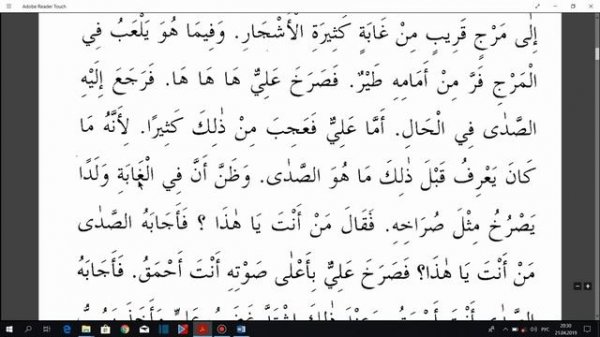 Adobe Reader Touch
إِلٰى مَرْجٍ قَرِيبٍ مِنْ غَابَةٍ كَثِيرَةِ الْأَشْجَارِ. وَفِيمَا هُوَ يَلْعَبُ فِي
الْمَرْجِ فَرَّ مِنْ أَمَامِهِ طَيْرٌ. فَصَرَخَ عَلِيٌّ هَا هَا هَا. فَرَجَعَ إِلَيْهِ
الصَّدٰى فِي الْحَالِ. أَمَّا عَلِيٌّ فَعَجِبَ مِنْ ذٰلِكَ كَثِيرًا. لِأَنَّهُ مَا
كَانَ يَعْرِفُ قَبْلَ ذٰلِكَ مَا هُوَ الصَّدٰى. وَظَنَّ أَنَّ فِي الْغَابَةِ وَلَدًا
يَصْرُخُ مِثْلَ صُرَاخِهِ. فَقَالَ مَنْ أَنْتَ يَا هٰذَا ؟ فَأَجَابَهُ الصَّدٰى
مَنْ أَنْتَ يَا هٰذَا؟ فَصَرَخَ عَلِيٌّ بِأَعْلٰى صَوْتِهِ أَنْتَ أَحْمَقُ. فَأَجَابَهُ
РУС
20:30
21.04.2019